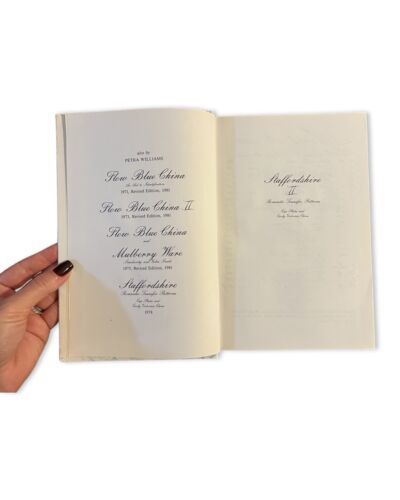 also by
PETRA WILLIAMS
Flow Blue China
An Aid to Identification
1971, Revised Edition, 1981
Flow Blue China II
1973, Revised Edition, 1981
Flow Blue China
and
Mulberry Ware
Similarity and Value Guide
1975, Revised Edition, 1981
Staffordshire
Romantic Transfer Patterns
Cup Plates and
Early Victorian China
1978
Staffordshire
II
Romantic Transfer Patterns
Cup Plates and
Early Victorian China